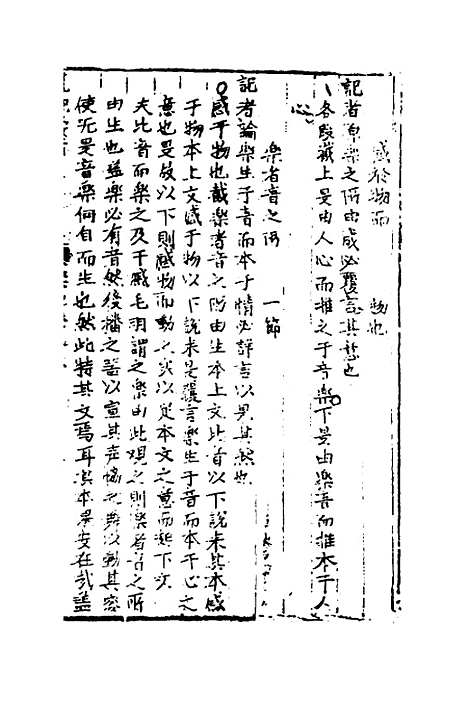 感於物而　　動也
記者原樂之所由成必覆言其意也
各段截上是由人心而推之于音樂下是由樂音而推本于人
心
樂者音之所　一節
記者論樂生于音而本于情必詳言以異其然也
感于物也截樂者音之所由生本上文比音以下說來其本感
于物本上文感于物以下說來是覆言樂生于音而本于心之
意也是故以下則感物而動之實以足本文之意而起下文
夫比音而樂之及干戚毛羽謂之樂由此觀之則樂者音之所
由生也蓋樂必有音然後播之器以宣其声協之舞以動其容
使无是音樂何自而生也然此特其文焉耳其本果安在哉蓋